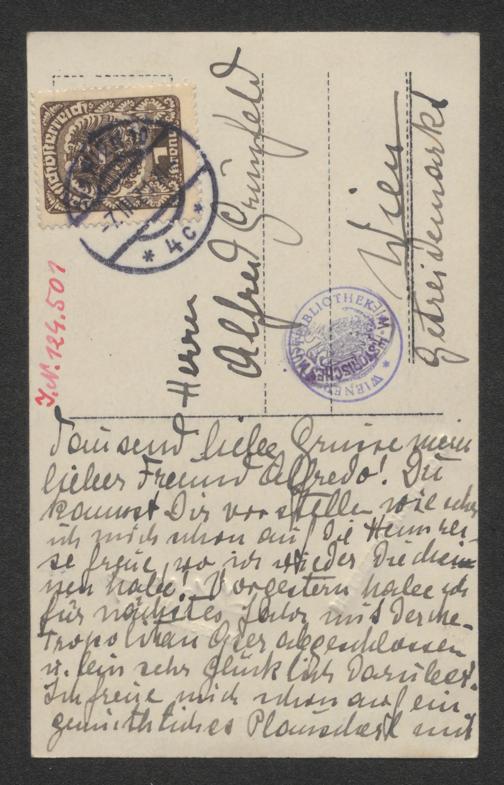 Deutschösterreich
1
Wien 10
-7.III
* 4c *
Herrn
Alfred Grünfeld
Wien
Getreidemarkt
J.N. 124.501
Tausend liebe Grüsse mein
lieber Freund Alfredo! Du
kannst Dir vorstellen wie sehr
ich mich schon auf die Heimrei-
se freue, wo ich wieder
nen habe! Vorgestern habe ich
für nächstes Jahr mit der Me-
tropolitan Oper abgeschlossen
u. bin sehr glücklich darüber!
Ich freue mich schon auf ein
gemüthliches mit